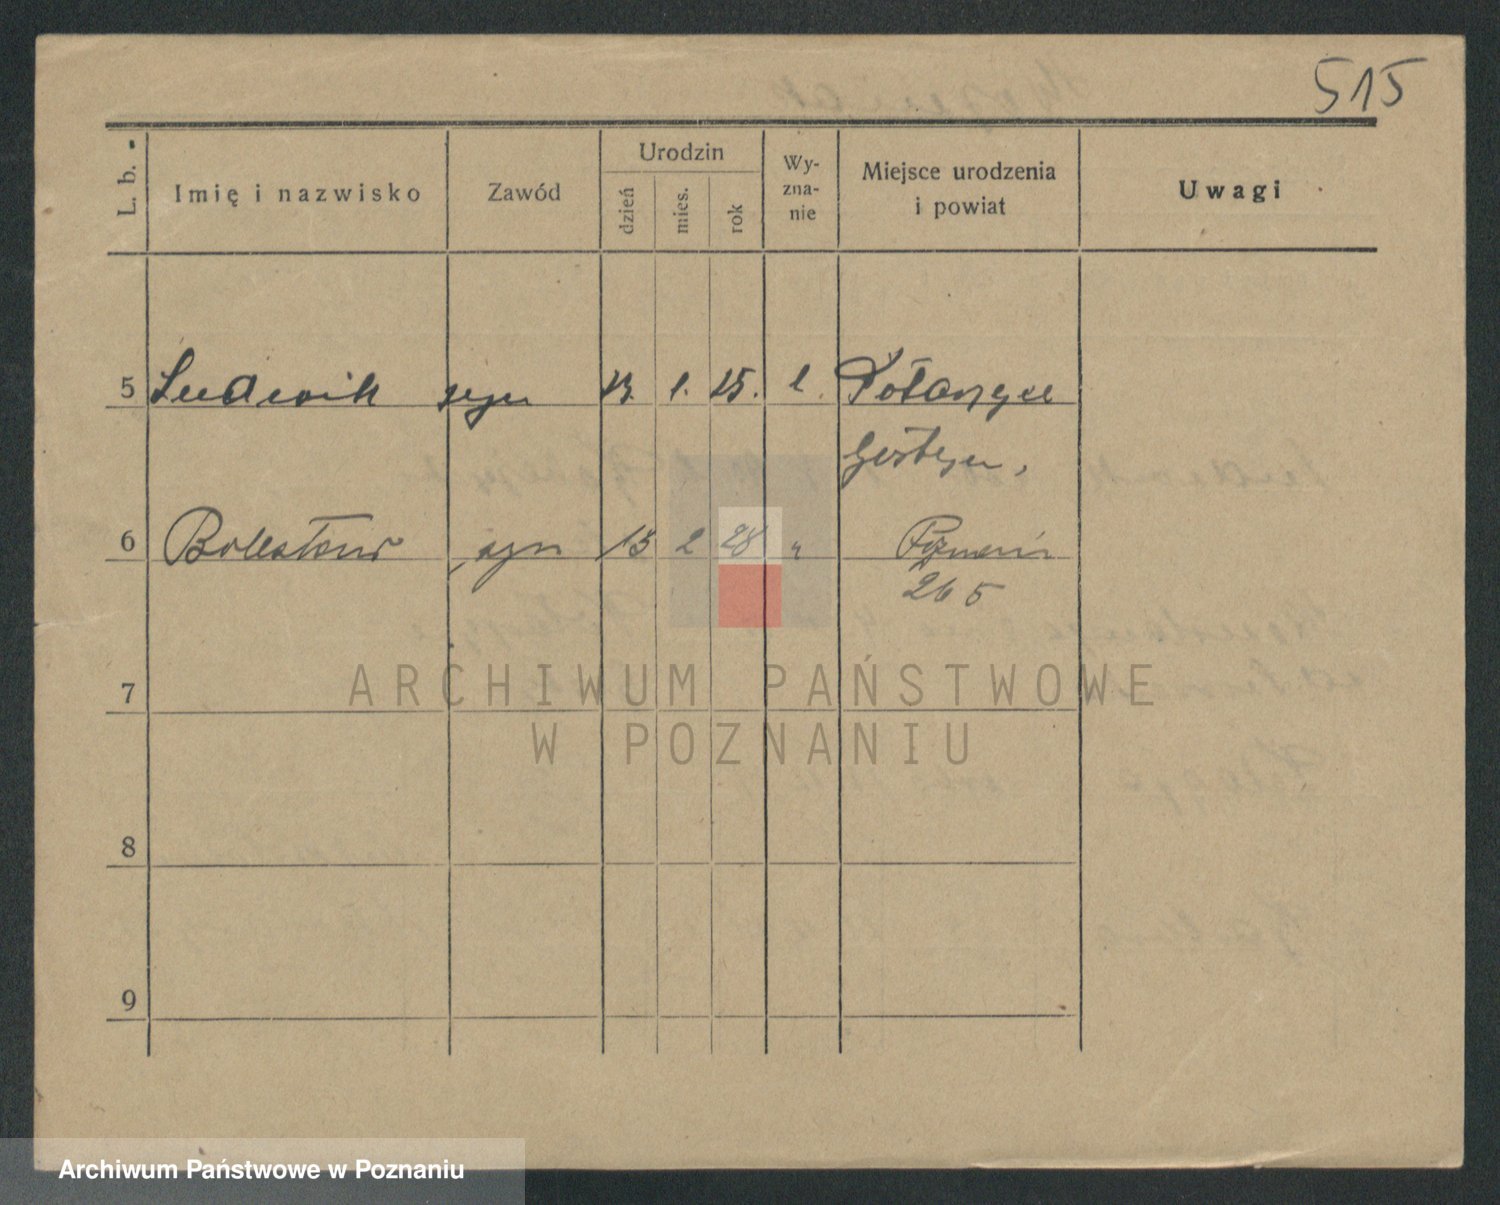 515
L. b.
Imię i nazwisko
Zawód
Urodzin
dzień
mies.
rok
Wy-
zna-
nie
Miejsce urodzenia
i powiat
Uwagi
5 Ludwik syn 1. 25. Potarzyce
Gostyn,
6 Bolesław syn 15 2 28 " Poznań
265
7
8
9
ARCHIWUM PAŃSTWOWE
W POZNANIU
Archiwum Państwowe w Poznaniu